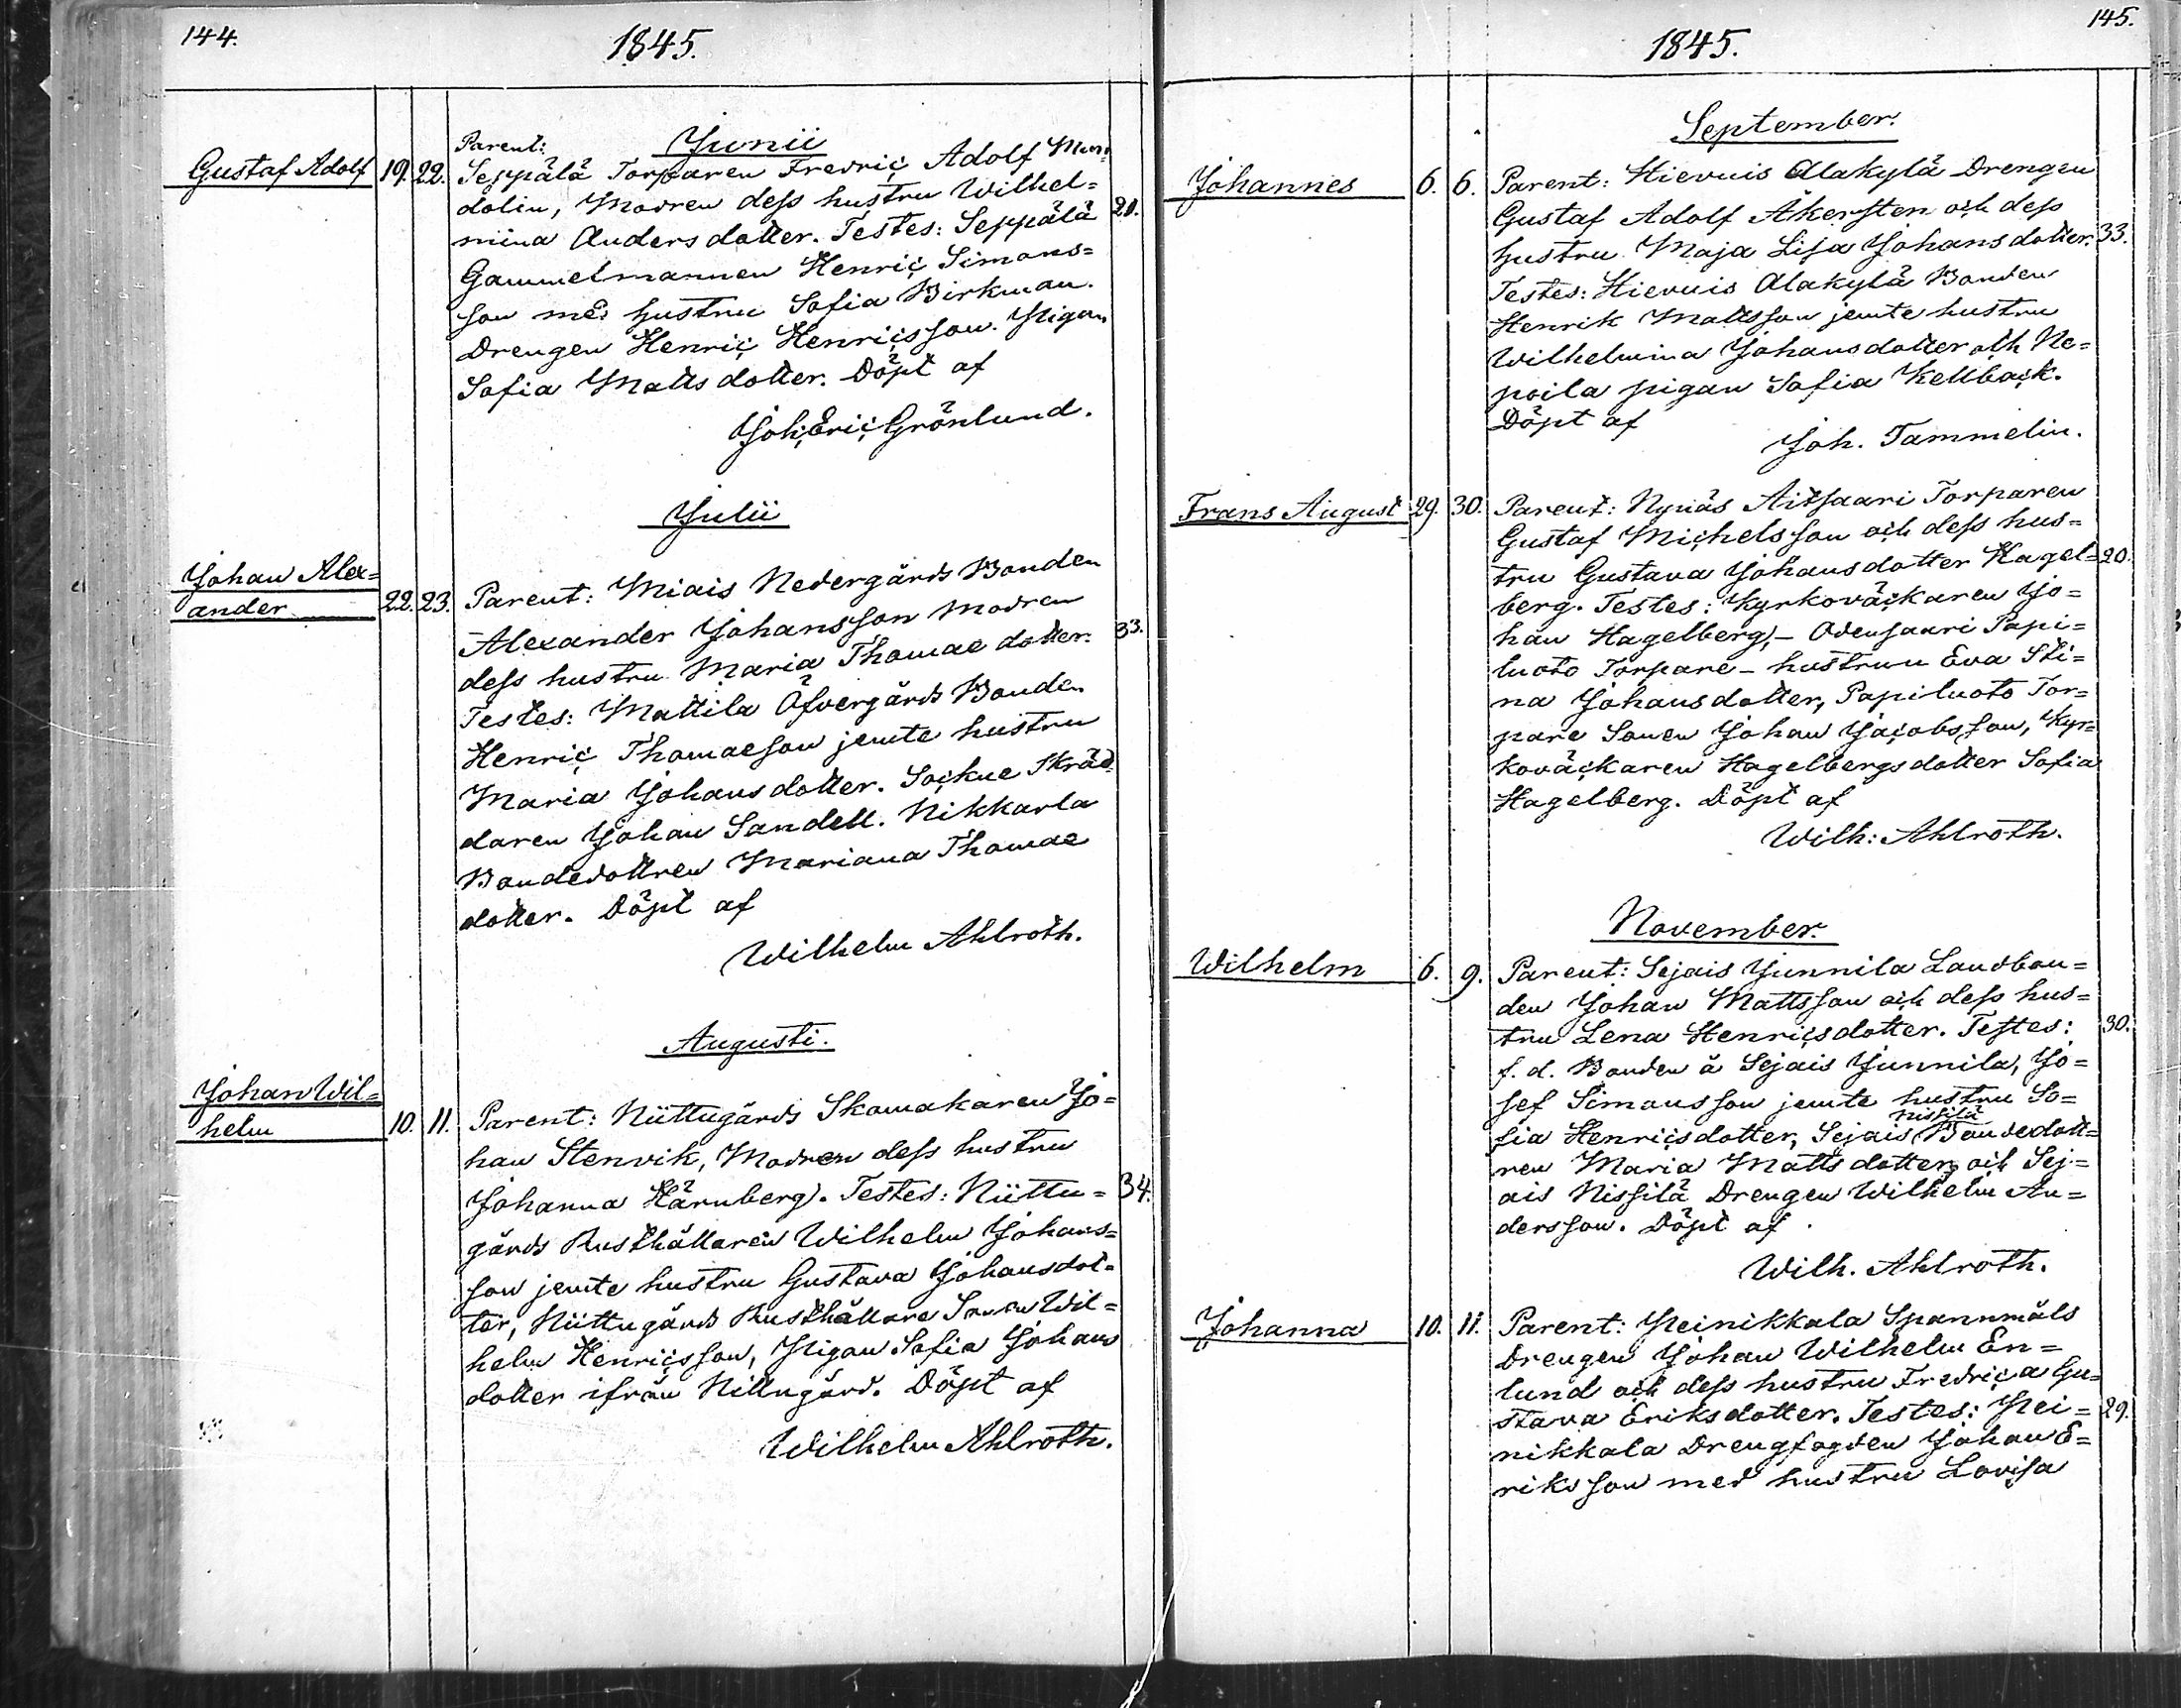 144.
1845.
Junii
Parent:
Gustaf Adolf 19. 22. Seppälä Torparen Fredric Adolf Mun=
dolin, Modren dess hustru Wilhel=
mina Andersdotter. Testes: Seppälä 20.
Gammelmannen Henric Simons=
son med hustru Sofia Birkman.
Drengen Henric Henricsson. Pigan
Sofia Mattsdotter. Döpt af
Joh: Eric Grönlund.
Julii
Johan Alex=
ander 22. 23. Parent: Miais Nedergårds Bonden
Alexander Johansson Modren
dess hustru Maria Thomae dotter. 33.
Testes: Mattila Öfvergårds Bonden
Henric Thomaeson jemte hustru
Maria Johansdotter. Sockne Skräd=
daren Johan Sandell. Nikkarla
Bondedottren Mariana Thomae
dotter. Döpt af
Wilhelm Ahlroth.
Augusti.
Johan Wil=
helm 10. 11. Parent: Niittugårds Skomakaren Jo=
han Stenvik, Modren dess hustru
Johanna Härnberg). Testes: Niittu= 34.
gårds Rusthållaren Wilhelm Johans=
son jemte hustru Gustava Johansdot=
ter, Niittugårds Rusthållare Sonen Wil=
helm Henricsson, Pigan Sofia Johans
dotter ifrån Nittugård. Döpt af
Wilhelm Ahlroth.
145.
1845.
September.
Johannes 6. 6. Parent: Hievuis Alakylä Drengen
Gustaf Adolf Åkersten och dess
hustru Maja Lisa Johansdotter. 33.
Testes: Hievuis Alakylä Bonden
Henrik Mattsson jemte hustru
Wilhelmina Johansdotter och Ne=
poila pigan Sofia Kellback.
Döpt af
Joh. Tammelin.
Frans August 29. 30. Parent: Nynäs Aitsaari Torparen
Gustaf Michelsson och dess hus=
tru Gustava Johansdotter Hagel= 20.
berg. Testes: Kyrkoväckaren Jo=
han Hagelberg, – Odensaari Papi=
luoto Torpare – hustrun Eva Sti=
na Johansdotter, Papiluoto Tor=
pare Sonen Johan Jacobsson, Kyr=
koväckaren Hagelbergs dotter Sofia
Hagelberg. Döpt af
Wilh: Ahlroth.
November.
Wilhelm 6. 9. Parent: Sejais Junnila Landbon=
den Johan Mattsson och dess hus=
tru Lena Henricsdotter. Testes: 30.
f. d. Bonden å Sejais Junnila, Jo=
sef Simonsson jemte hustru So=
Nissilä
fia Henricsdotter, Sejais Bondedott=
ren Maria Mattsdotter, och Sej=
ais Nissilä Drengen Wilhelm An=
dersson. Döpt af
Wilh. Ahlroth.
Johanna 10. 11. Parent: Peinikkala Spannmåls
Drengen Johan Wilhelm En=
lund och dess hustru Fredrica Gu=
stava Eriksdotter. Testes: Pei= 29.
nikkala Drengfogden Johan E=
riksson med hustru Lovisa